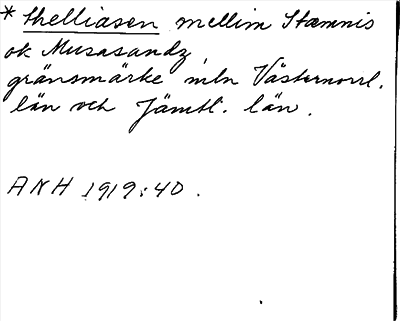 * thelliasen mellim Stamnis
ok Musasandz,
gränsmärke mln Västernorrl.
län och Jämtl. län.
ANH 1919:40.